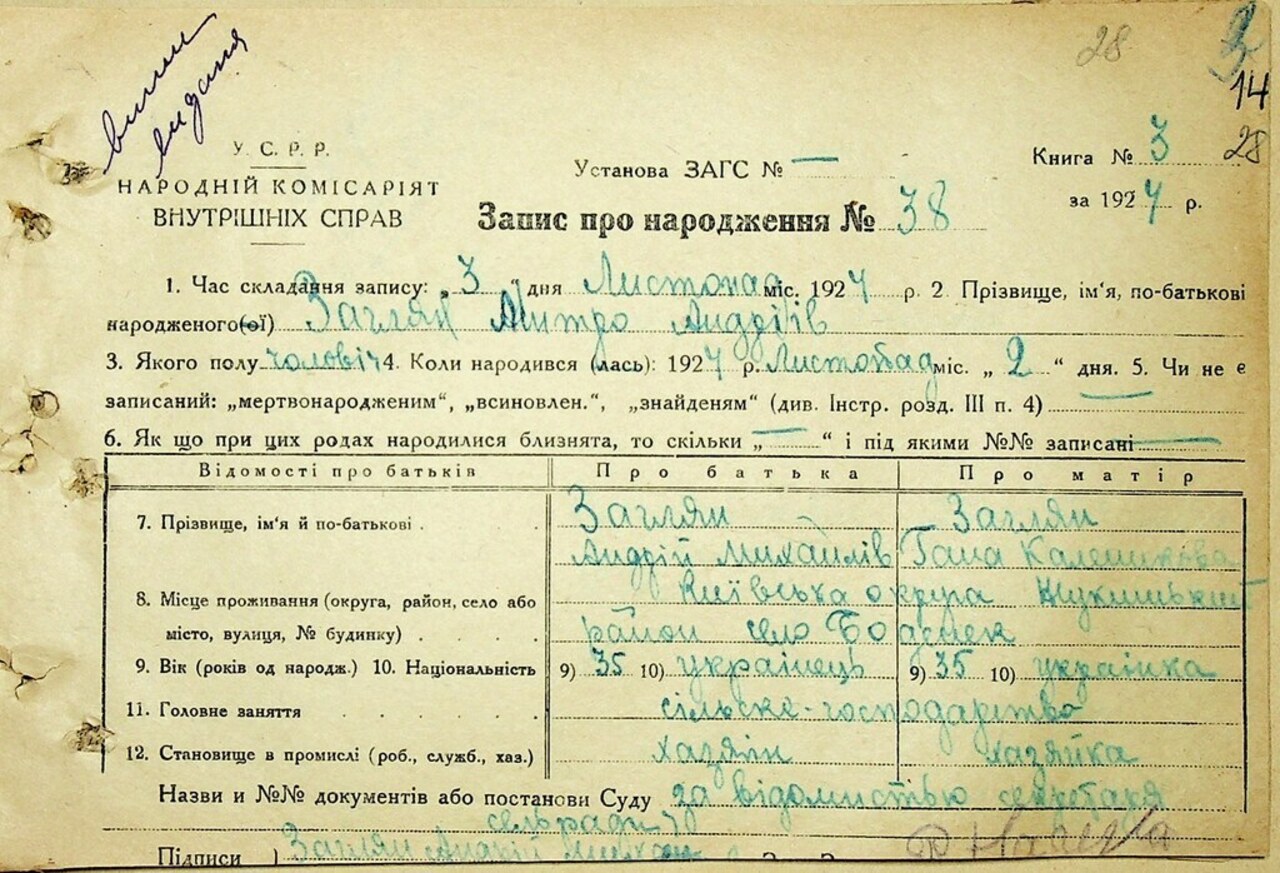 28
3
14
випис
видана
У. С. Р. Р.
НАРОДНІЙ КОМІСАРІЯТ
ВНУТРІШНІХ СПРАВ
Установа ЗАГС № —
Книга № 3
28
за 1927 р.
Запис про народження № 38
1. Час складання запису: „ 3 “ дня Листопад міс. 1927 р. 2. Прізвище, ім'я, по-батькові
народженого(ої) Заглян Митро Андріїв
3. Якого полу чоловіч 4. Коли народився (лась): 1927 р. Листопад міс. „ 2 “ дня. 5. Чи не є
записаний: „мертвонародженим“, „всиновлен.“, „знайденям“ (див. Інстр. розд. III п. 4) —
6. Як що при цих родах народилися близнята, то скільки „ — “ і під якими №№ записані —
Відомості про батьків Про батька Про матір
7. Прізвище, ім'я й по-батькові Заглян Заглян
Андрій Михайлів Гана
8. Місце проживання (округа, район, село або Київська округа
місто, вулиця, № будинку) район село
9. Вік (років од народж.) 10. Національність 9) 35 10) українець 9) 35 10) українка
11. Головне заняття сільске-господарство
12. Становище в промислі (роб., служб., хаз.) хазяїн хазяйка
Назви и №№ документів або постанови Суду за відомистью секретаря
сельради
Підписи Заглян Андрій